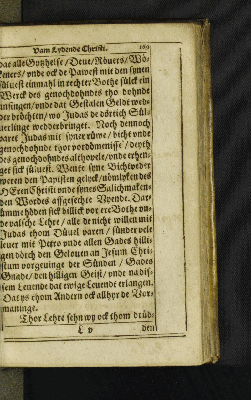 Vam Lydende Christi. 169
dat alle Gotzhelse / Deue / Röuers / Wö-
keners / vnde ock de Pawest mit den synen
süluest einmahl in rechter Bothe sülck ein
Werck des genochdohndes tho dohnde
anfingen / vnde dat Gestalen Geldt wed-
der bröchten / wo Judas de dörtich Sül-
uerlinge wedderbringet. Noch dennoch
waret Judas mit syner rüwe / bicht vnde
genochdohnde thor vordömenisse / deyth
des genochdohndes althovele / vnde erhen-
get sick süluest. Wente syne Bicht
weren den Papisten gelyck / nömlyken des
HEren Christi vnde synes Salichmaken-
den Wordes affgesechte Vyende. Dar-
ümme höden sick billick vor ere Bothe vn-
de valsche Lehre / alle de nicht willen mit
Judas thom Düuel varen / sünder vele
leuer mit Petro vnde allen Gades Hilli-
gen dörch den Gelouen an Jesum Chri-
stum vorgeuinge der Sünden / Gades
Gnade / den hilligen Geist / vnde na dis-
sem Leuende dat ewige Leuende erlangen.
Dat ys thom Andern ock allhyr de Vor-
maninge.
Thor Lehre sehn wy ock thom drüd-
L v den